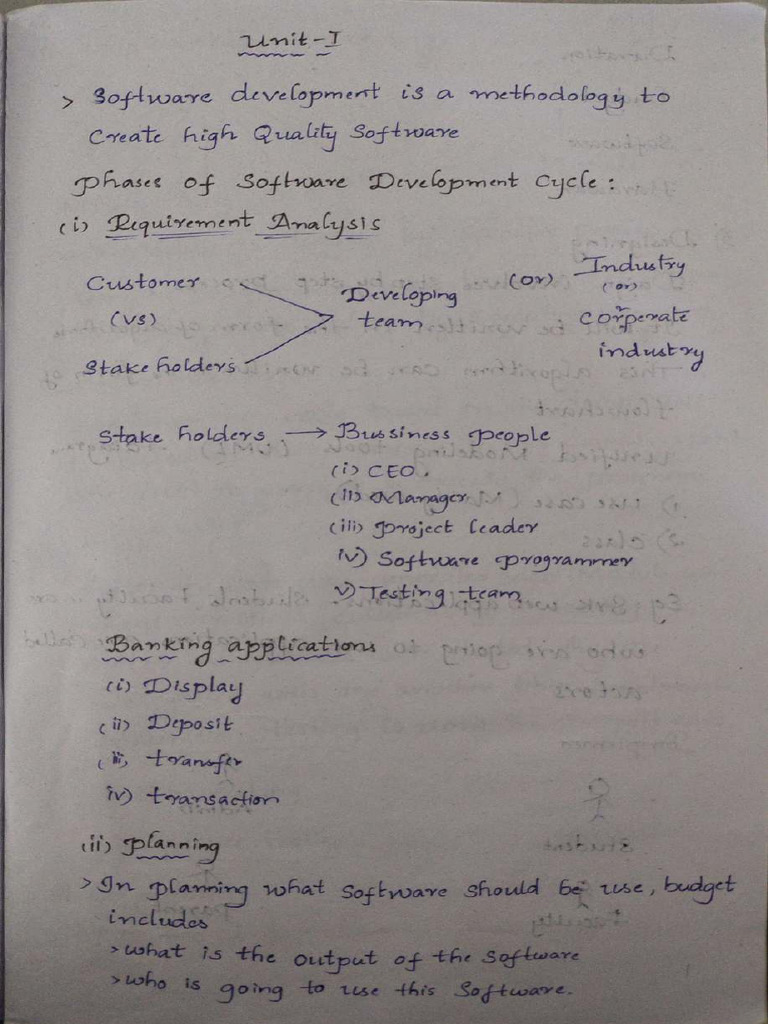 Unit-I
> Software development is a methodology to
Create high Quality Software
Phases of Software Development Cycle :
(i) Requirement Analysis
Customer
(vs)
Stake holders
Developing
team
(or)
Industry
(or)
corperate
industry
Stake holders → Bussiness people
(i) CEO.
(ii) Manager
(iii) Project leader
iv) Software programmer
v) Testing team
Banking applications
(i) Display
(ii) Deposit
(iii) transfer
iv) transaction
(ii) Planning
> In planning what software should be use, budget
includes
> what is the output of the Software
> who is going to use this Software.